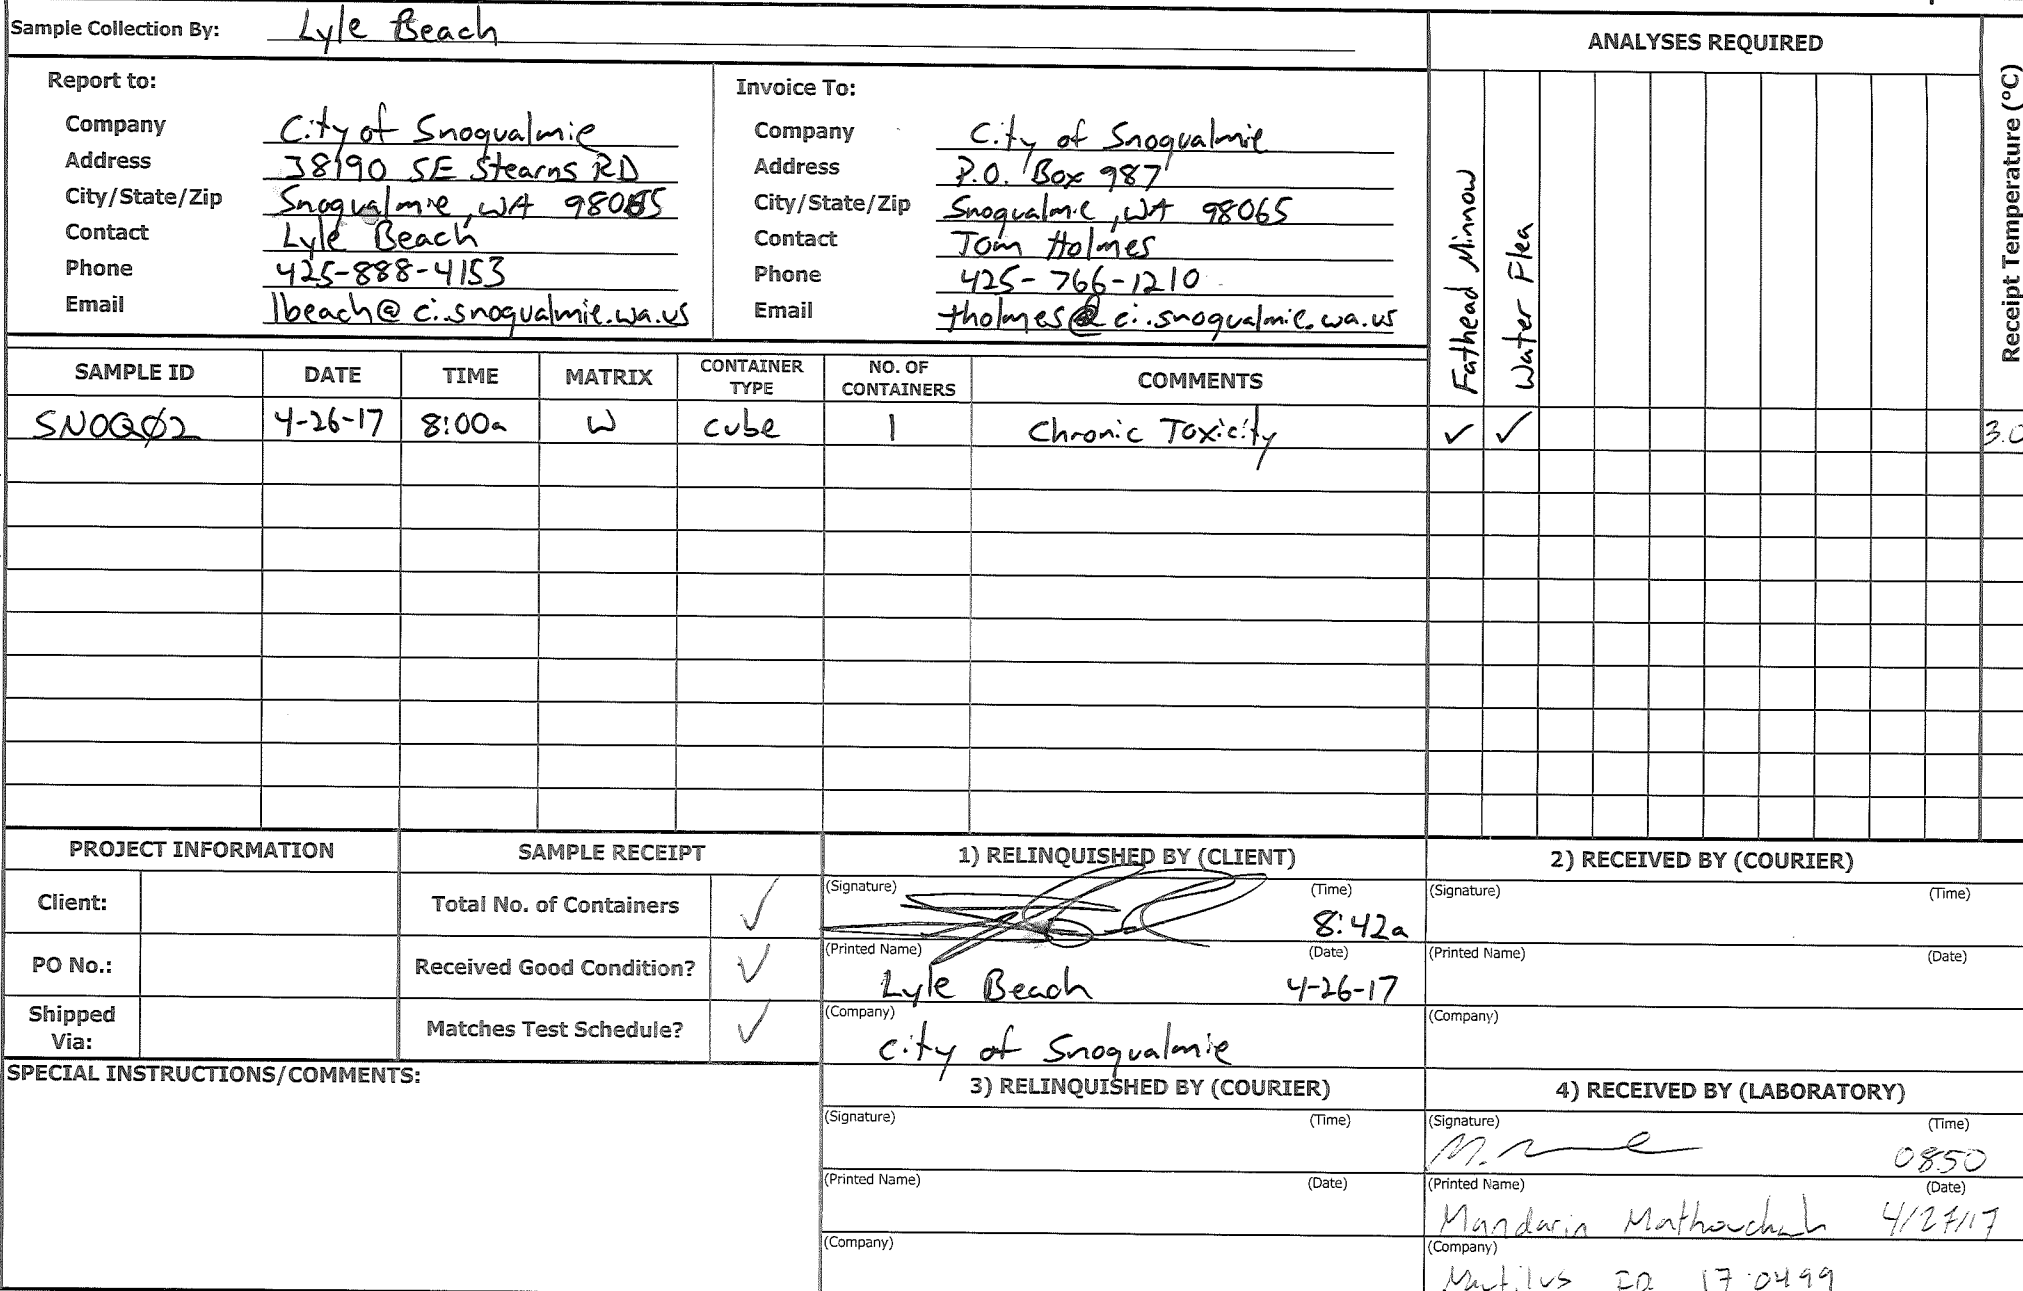 Sample Collection By: Lyle Beach
ANALYSES REQUIRED
Receipt Temperature (°C)
Fathead Minnow
Water Flea
Report to:
Company City of Snoqualmie
Address 38190 SE Stearns RD
City/State/Zip Snoqualmie, WA 98065
Contact Lyle Beach
Phone 425-888-4153
Email lbeach@ci.snoqualmie.wa.us
Invoice To:
Company City of Snoqualmie
Address P.O. Box 987
City/State/Zip Snoqualmie, WA 98065
Contact Tom Holmes
Phone 425-766-1210
Email tholmes@ci.snoqualmie.wa.us
SAMPLE ID DATE TIME MATRIX CONTAINER TYPE NO. OF CONTAINERS COMMENTS
SNOQØ2 4-26-17 8:00a W cube 1 Chronic Toxicity ✓ ✓ 3.0
PROJECT INFORMATION
Client:
PO No.:
Shipped Via:
SAMPLE RECEIPT
Total No. of Containers ✓
Received Good Condition? ✓
Matches Test Schedule? ✓
SPECIAL INSTRUCTIONS/COMMENTS:
1) RELINQUISHED BY (CLIENT)
(Signature) (Time)
8:42a
(Printed Name) (Date)
Lyle Beach 4-26-17
(Company)
City of Snoqualmie
2) RECEIVED BY (COURIER)
(Signature) (Time)
(Printed Name) (Date)
(Company)
3) RELINQUISHED BY (COURIER)
(Signature) (Time)
(Printed Name) (Date)
(Company)
4) RECEIVED BY (LABORATORY)
(Signature) (Time)
0850
(Printed Name) (Date)
Mandarin 4/27/17
(Company)
Nautilus ID 17-0499